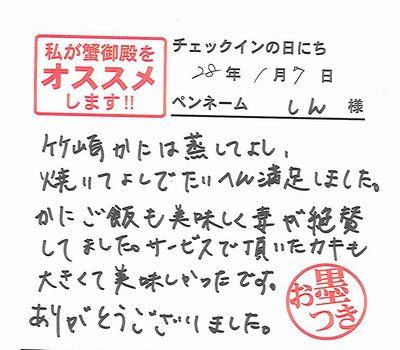 私が蟹御殿を
オススメ
します!!
チェックインの日にち
28年1月7日
ペンネーム しん 様
竹崎かには蒸してよし、
焼いてよしでたいへん満足しました。
かにご飯も美味しく妻が絶賛
してました。サービスで頂いたカキも
大きくて美味しかったです。
ありがとうございました。
お墨つき